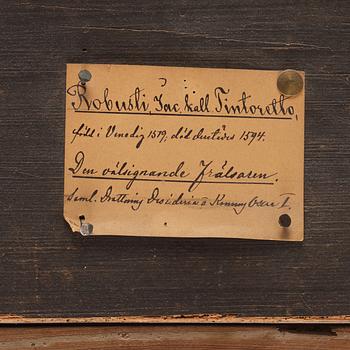 Robusti, Jac. kall. Tintoretto,
född i Venedig 1519, död derstädes 1594.
Den välsignande Frälsaren.
Saml. Drottning Desideria o Konung Oscar I.